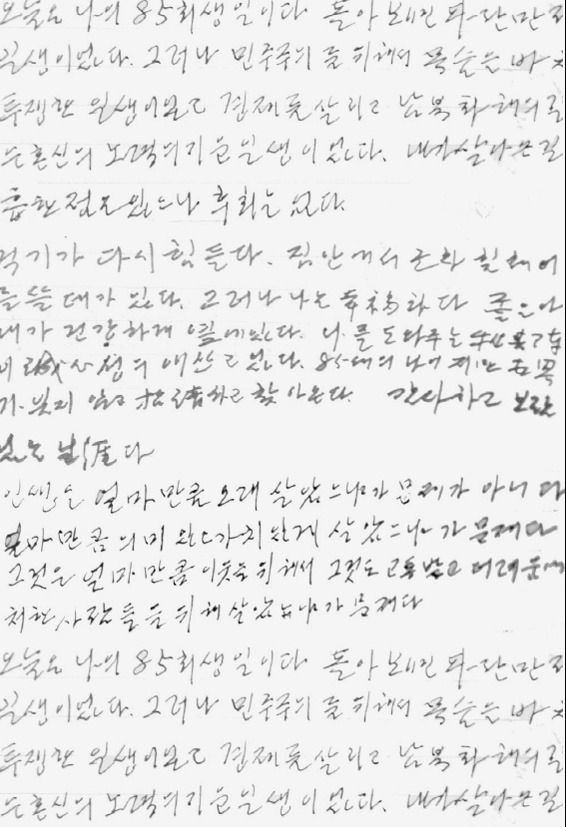 오늘은 나의 85회 생일이다 돌아보면 파란만
일생이었다. 그러나 민주주의를 위해서 목숨을 바
투쟁한 일생이었고 경제를 살리고 남북화해의 길
는 혼신의 노력의 기울인 일생이었다. 내가 살아온 길
흡한 점도 있으나 후회는 없다.
걷기가 다시 힘들다. 집안에서 조차 휠체어
를 쓸 때가 있다. 그러나 나는 幸福하다 좋은 아
내가 건강하게 옆에 있다. 나를 도와주는
비서 誠心 성의 애쓰고 있다. 85세의 나이 지만
가 찾아 온다. 감사하고 보람
있는 生涯다
인생은 얼마만큼 오래 살았느냐가 문제가 아니다
얼마만큼 의미 있고 가치 있게 살았느냐가 문제다
그것은 얼마만큼 이웃을 위해서 그것도 고통 받고 어려움에
처한 사람들을 위해 살았느냐가 문제다
오늘은 나의 85회 생일이다 돌아보면 파란만
일생이었다. 그러나 민주주의를 위해서 목숨을 바
투쟁한 일생이었고 경제를 살리고 남북화해의 길
는 혼신의 노력의 기울인 일생이었다. 내가 살아온 길